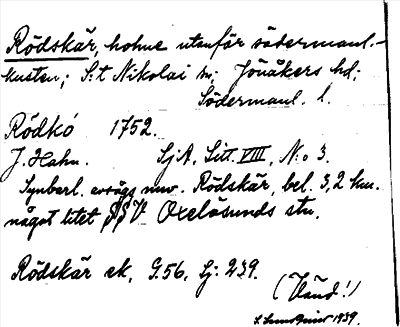 Rödskär, holme utanför södermanl.-
kusten; S:t Nikolai sn; Jönåkers hd;
Södermanl. l.
Rödkö 1752.
J. Hahn. SjA, Litt. VIII, N:o 3.
Synbarl. avsågs nuv. Rödskär, bel. 3,2 km.
något litet SSV Oxelösunds stn.
Rödskär ek. G.56, Sj: 239.
(Vänd!)
1939.